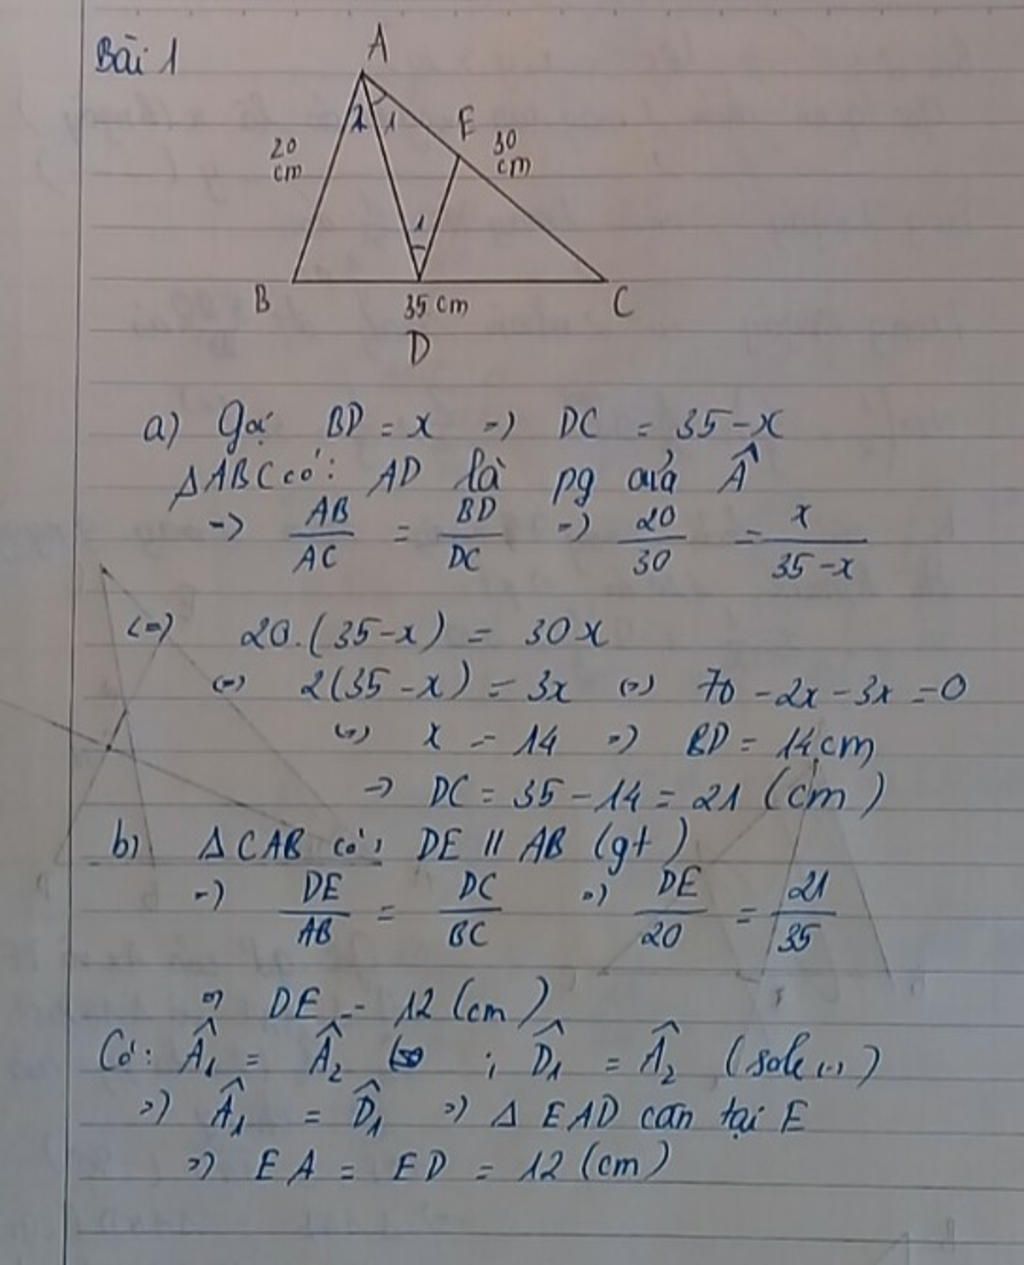 Bài 1
A
2 1
E
20 cm
30 cm
1
B
35 cm
C
D
a) Gọi BD = x => DC = 35-x
ΔABC có: AD là pg của Â
=> AB/AC = BD/DC => 20/30 = x/35-x
<=> 20.(35-x) = 30x
<=> 2(35-x) = 3x <=> 70-2x-3x=0
<=> x = 14 => BD = 14cm
=> DC = 35-14 = 21 (cm)
b) ΔCAB có: DE // AB (gt)
=> DE/AB = DC/BC => DE/20 = 21/35
=> DE = 12 (cm)
Có: Â₁ = Â₂ ; D̂₁ = Â₂ (sole...)
=> Â₁ = D̂₁ => Δ EAD cân tại E
=> EA = ED = 12 (cm)